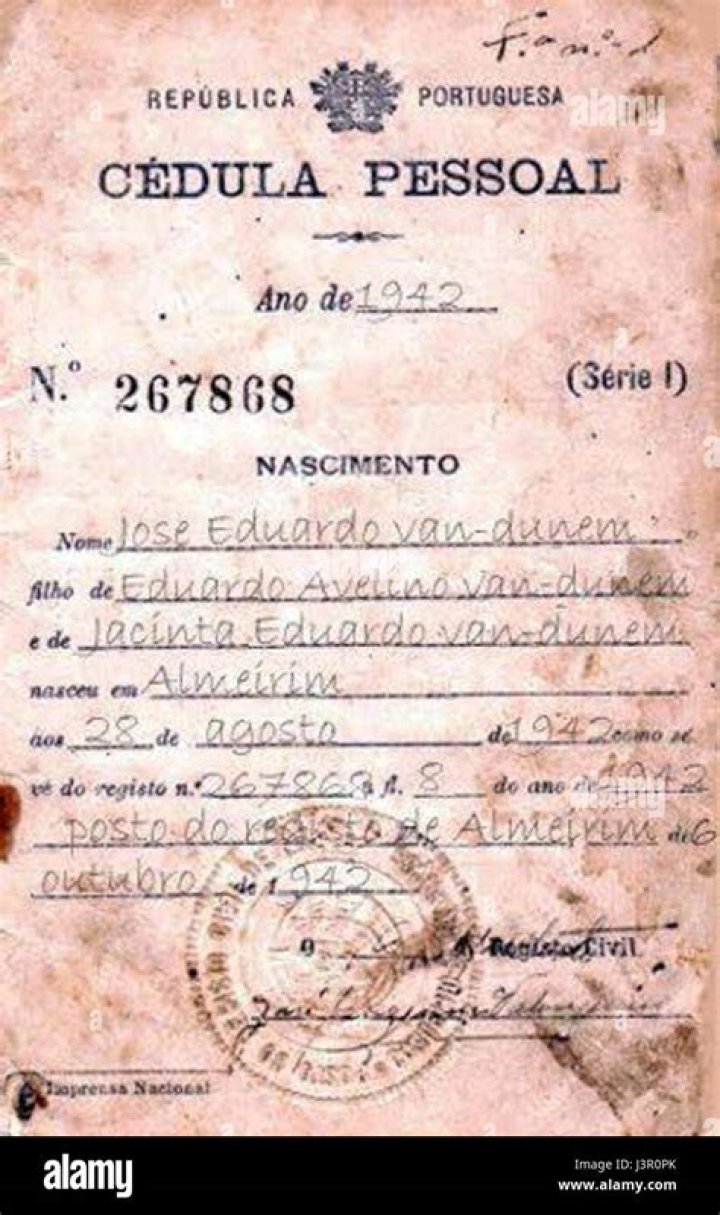 F.a n.o 1
REPÚBLICA PORTUGUESA
alamy
CÉDULA PESSOAL
Ano de 1942
N.º 267868 (Série I)
NASCIMENTO
Nome Jose Eduardo van-dunem
filho de Eduardo Avelino van-dunem
e de Jacinta Eduardo van-dunem
nasceu em Almeirim
aos 28 de agosto de 1942 como se
vê do registo n.º 267868 a fl. 8 do ano de 1942
alamy
posto do registo de Almeirim de 6
outubro de 1942
O Registo Civil
José
Imprensa Nacional
a
alamy
Image ID: J3R0PK
www.alamy.com